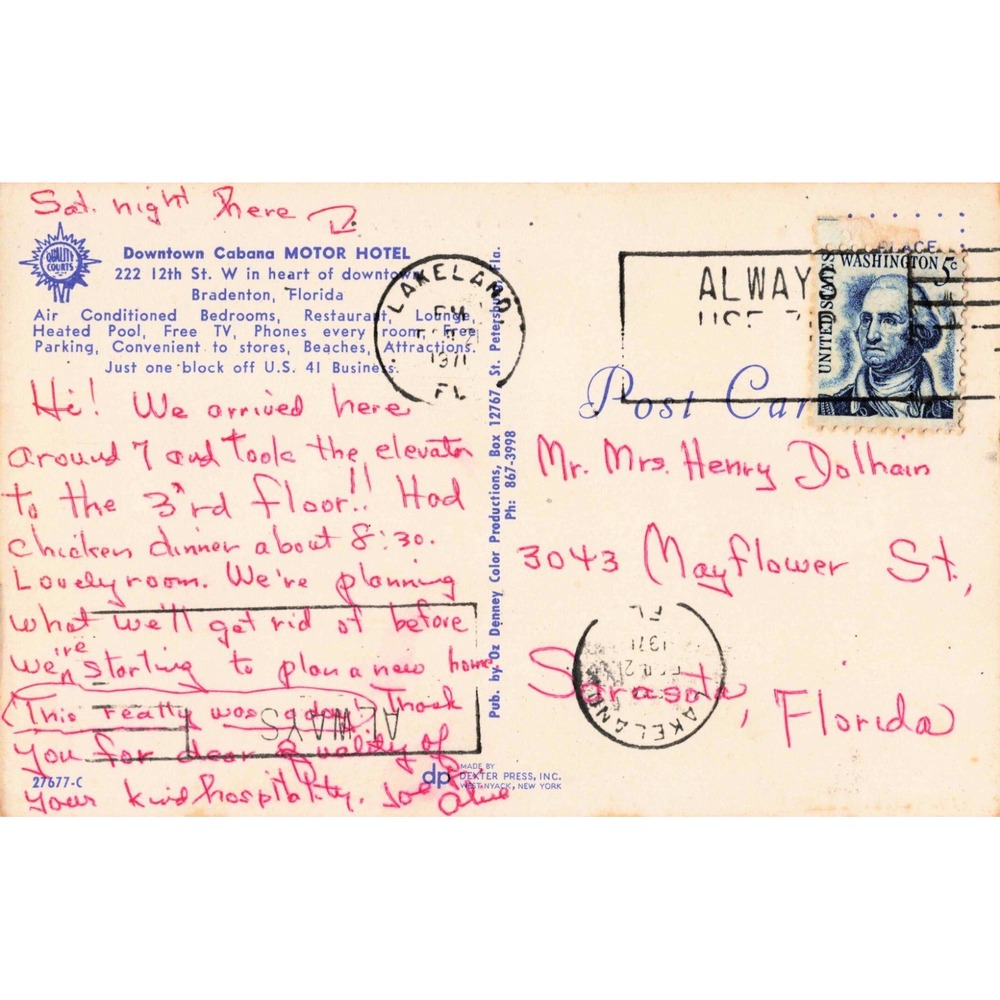 Sat. night here
QUALITY COURTS
Downtown Cabana MOTOR HOTEL
222 12th St. W in heart of downtown
Bradenton, Florida
Air Conditioned Bedrooms, Restaurant, Lounge,
Heated Pool, Free TV, Phones every room, Free
Parking, Convenient to stores, Beaches, Attractions.
Just one block off U.S. 41 Business.
Hi! We arrived here
around 7 and took the elevator
to the 3rd floor!! Had
chicken dinner about 8:30.
Lovely room. We're planning
what we'll get rid of before
we're starting to plan a new home
(This really was a day) Thank
you for dear quality of
your kind hospitality. Joe &
27677-C
Pub. by Oz Denney Color Productions, Box 12767 St. Petersburg, Fla.
Ph: 867-3998
MADE BY
dp DEXTER PRESS, INC.
WEST NYACK, NEW YORK
LAKELAND
PM
1971
FL
ALWAY
USE
PLACE
UNITED STATES
WASHINGTON 5c
Post Car
Mr. Mrs. Henry Dolhain
3043 Mayflower St.,
Sarasota, Florida
LAKELAND
1971
FL
ALWAYS